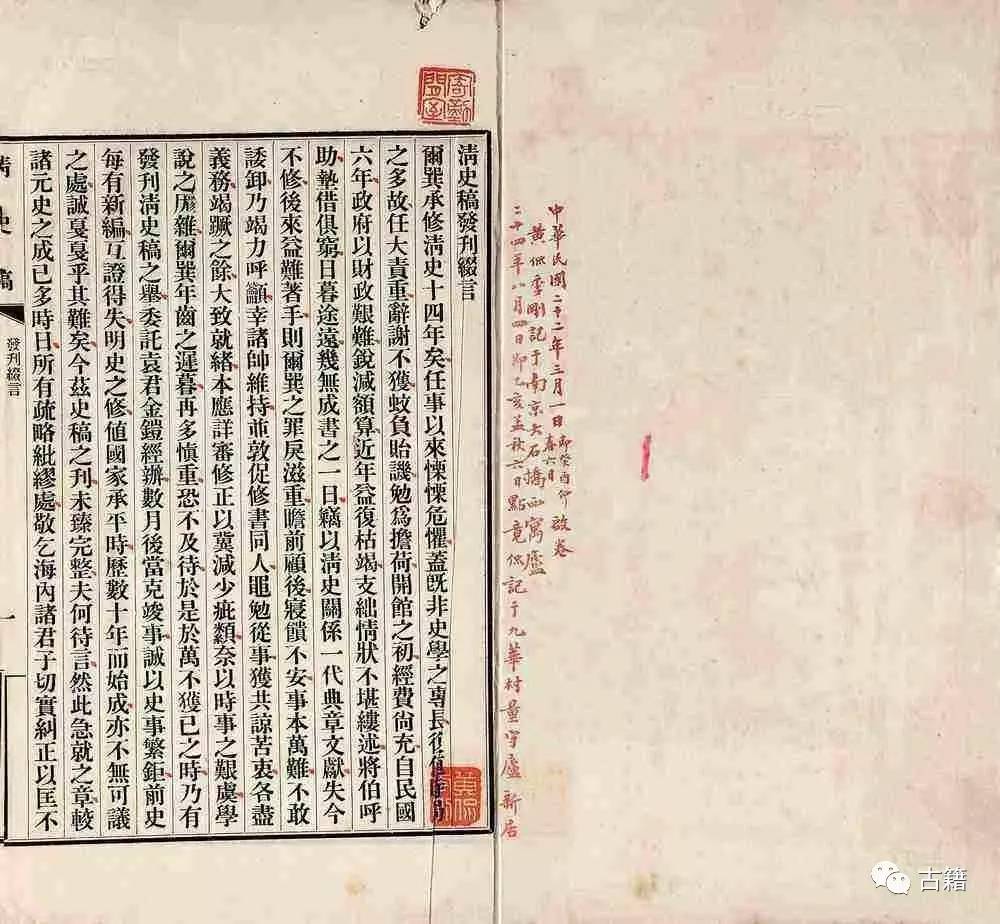 中華民國二十二年三月一日即癸酉仲春六日啟卷
黃侃季剛記于南京大石橋西寓廬
二十四年八月四日即乙亥孟秋六日點竟侃記于九華村量守廬新居
清史稿發刊綴言
爾巽承修清史十四年矣任事以來慄慄危懼蓋旣非史學之專長復
之多故任大責重辭謝不獲蚊負貽譏勉爲擔荷開館之初經費尙充自民國
六年政府以財政艱難銳減額算近年益復枯竭支絀情狀不堪縷述將伯呼
助墊借俱窮日暮途遠幾無成書之一日竊以淸史關係一代典章文獻失今
不修後來益難著手則爾巽之罪戾滋重瞻前顧後寢饋不安事本萬難不敢
諉卸乃竭力呼籲幸諸帥維持並敦促修書同人黽勉從事獲共諒苦衷各盡
義務竭蹶之餘大致就緒本應詳審修正以冀減少疵纇奈以時事之艱虞學
說之厖雜爾巽年齒之遲暮再多愼重恐不及待於是於萬不獲已之時乃有
發刊淸史稿之舉委託袁君金鎧經辦數月後當克竣事誠以史事繁鉅前史
每有新編互證得失明史之修値國家承平時歷數十年而始成亦不無可議
之處誠戛戛乎其難矣今茲史稿之刊未臻完整夫何待言然此急就之章較
諸元史之成已多時日所有疏略紕繆處敬乞海內諸君子切實糾正以匡不
清史稿
發刊綴言
一
古籍